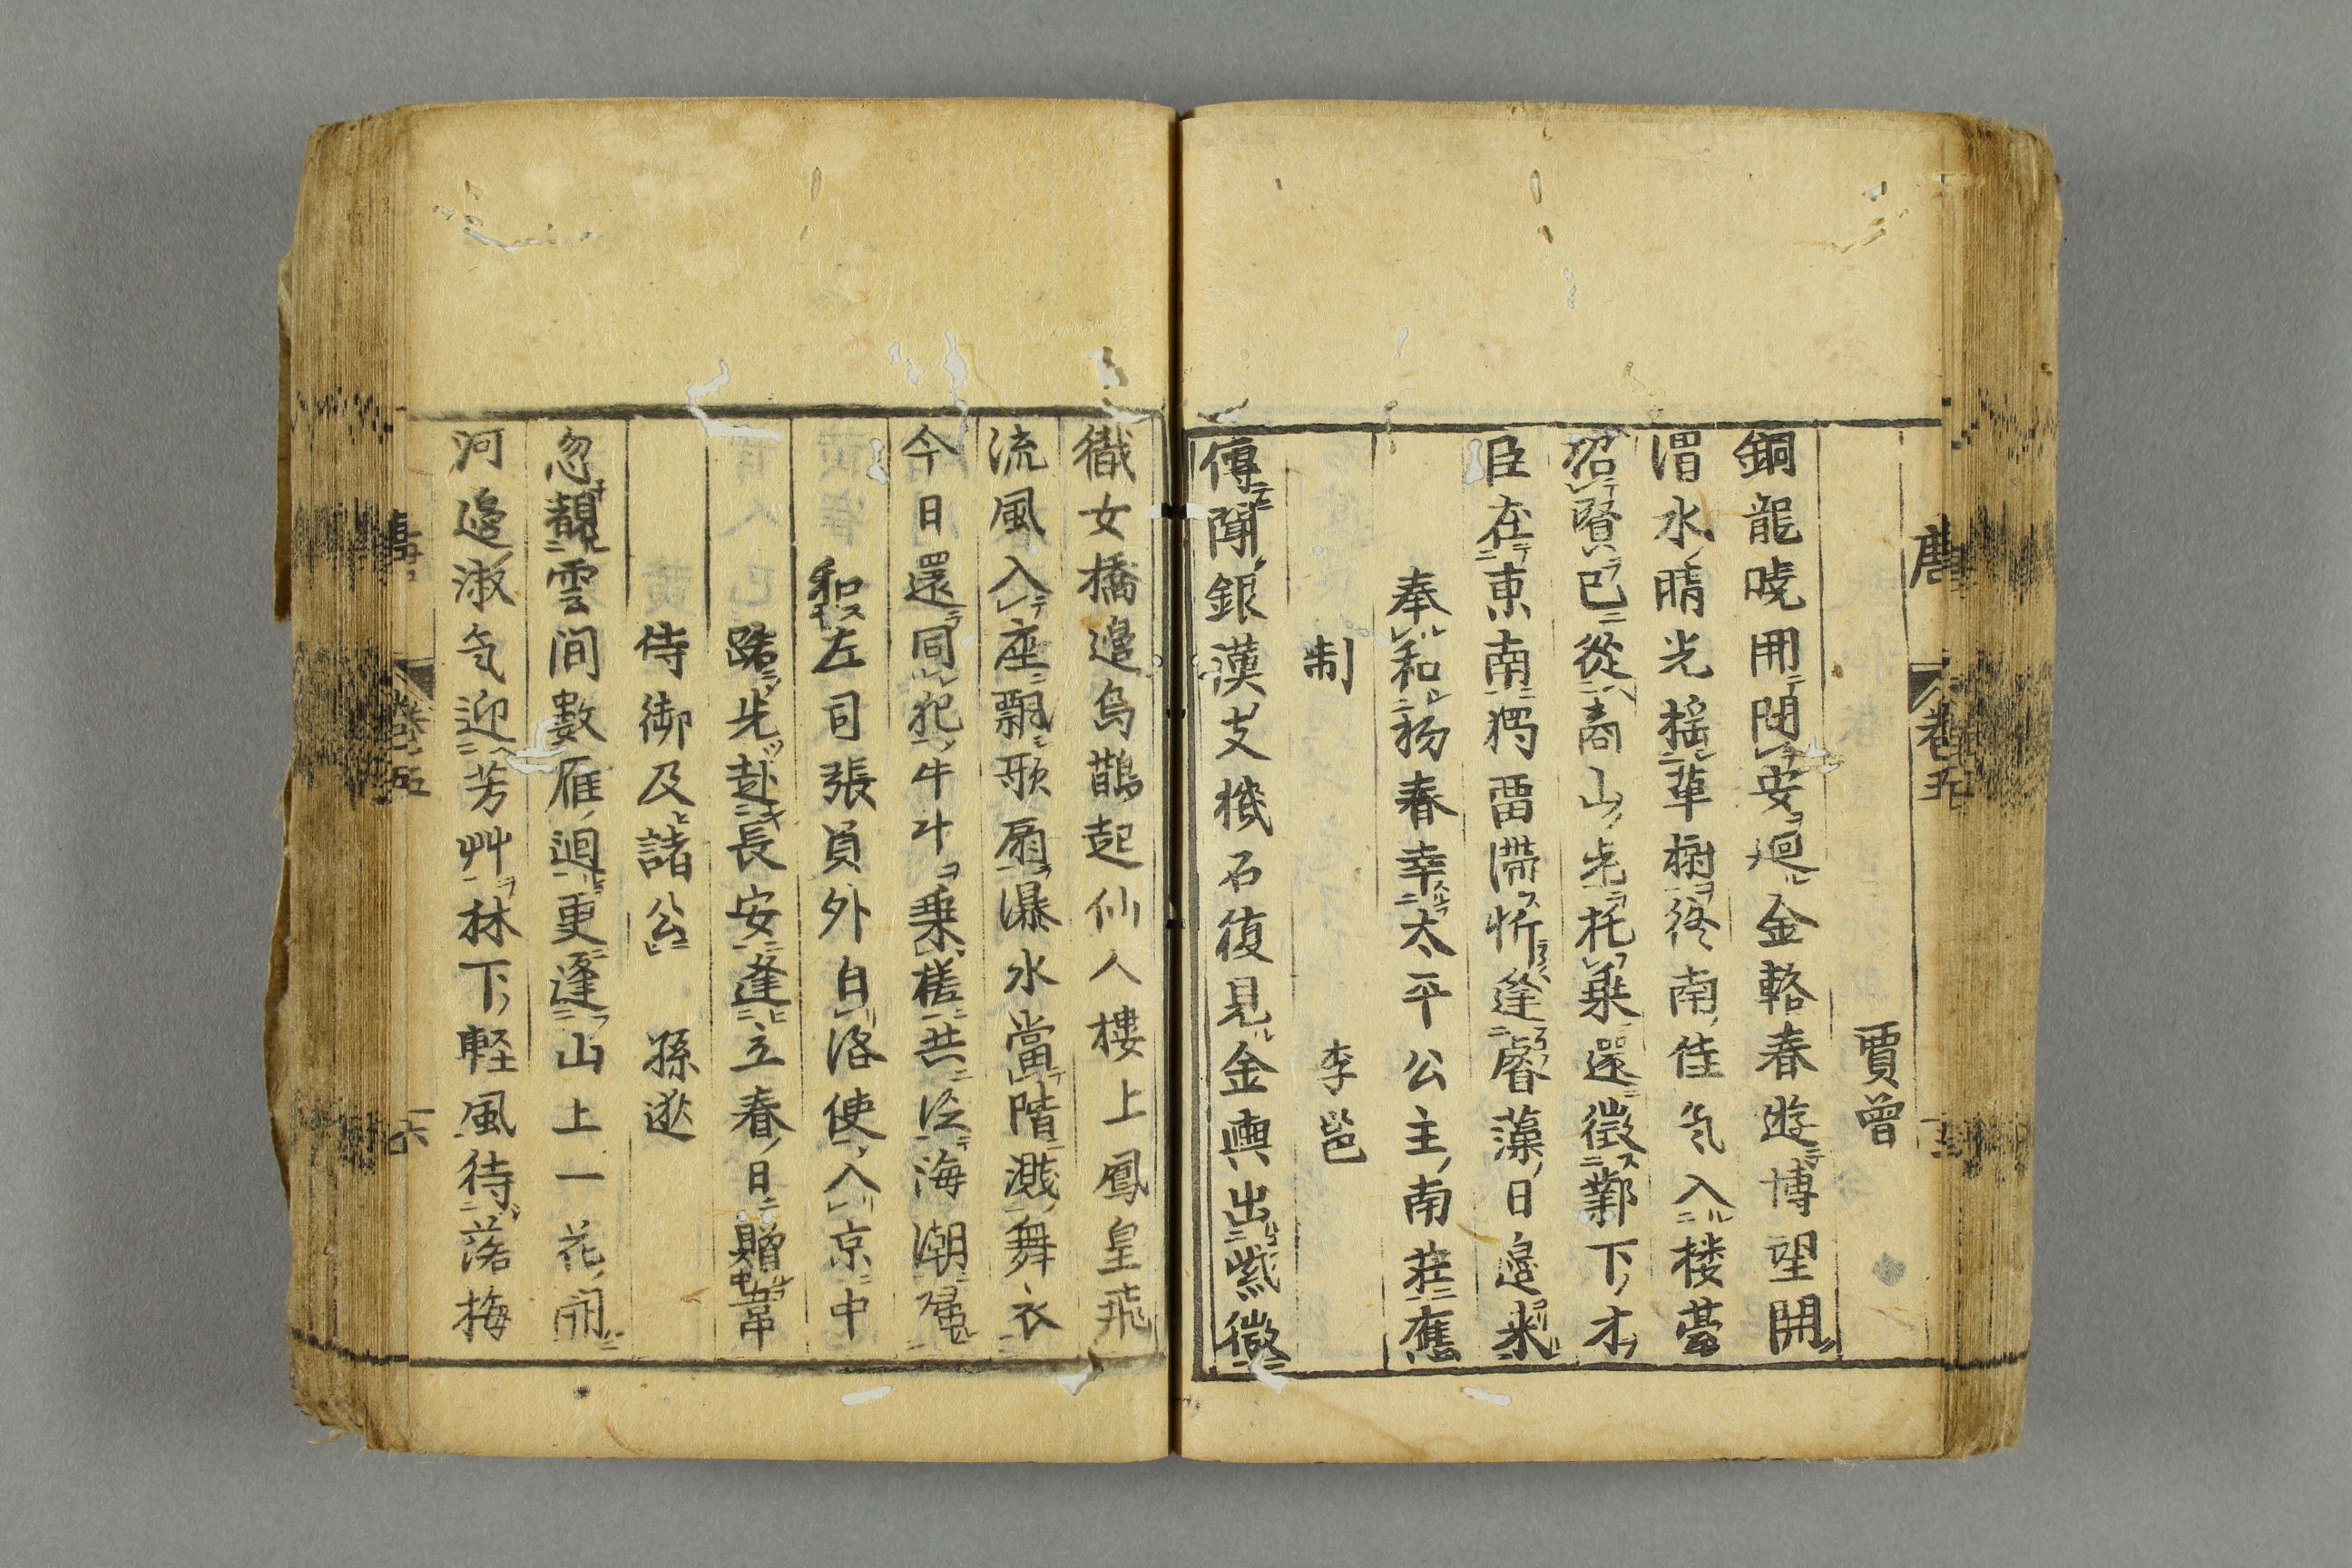 唐 卷五
賈曾
銅龍曉開問安廻金輅春遊博望開
渭水晴光搖草樹終南佳气入楼臺
招賢已從商山老托乗還徵鄴下才
臣在東南獨畱滯忻逢睿藻日邉來
奉和初春幸太平公主南莊應
制 李邕
傳聞銀漢支機石復見金輿出紫微
織女橋邉烏鵲起仙人樓上鳳皇飛
流風入座飄歌扇瀑水當階濺舞衣
今日還同犯牛斗乗槎共泛海潮歸
和左司張員外自洛使入京中
路先赴長安逢立春日贈韋
侍御及諸公 孫逖
忽覩雲间數雁迴更逢山上一花開
河邉淑气迎芳艸林下軽風待落梅
唐 卷五 十六